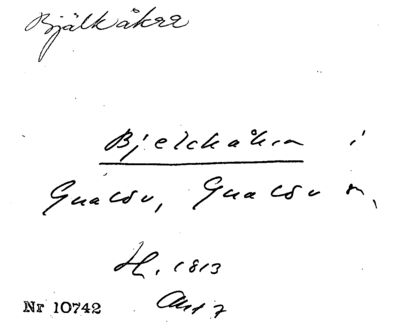 Bjälkåkra
Bjelckåkra i
Gualöv, Gualöv s,
H. 1813
Nr 10742